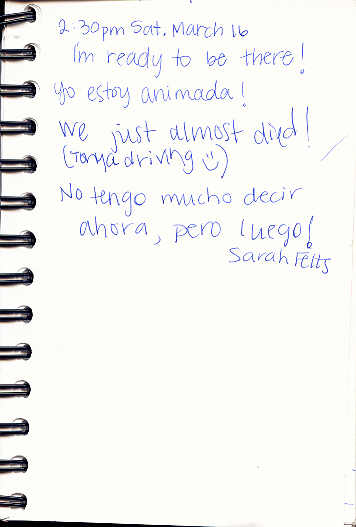 2:30pm Sat. March 16
I'm ready to be there!
Yo estoy animada!
We just almost died!
(Tonya driving ☺)
No tengo mucho decir
ahora, pero luego!
Sarah Felts